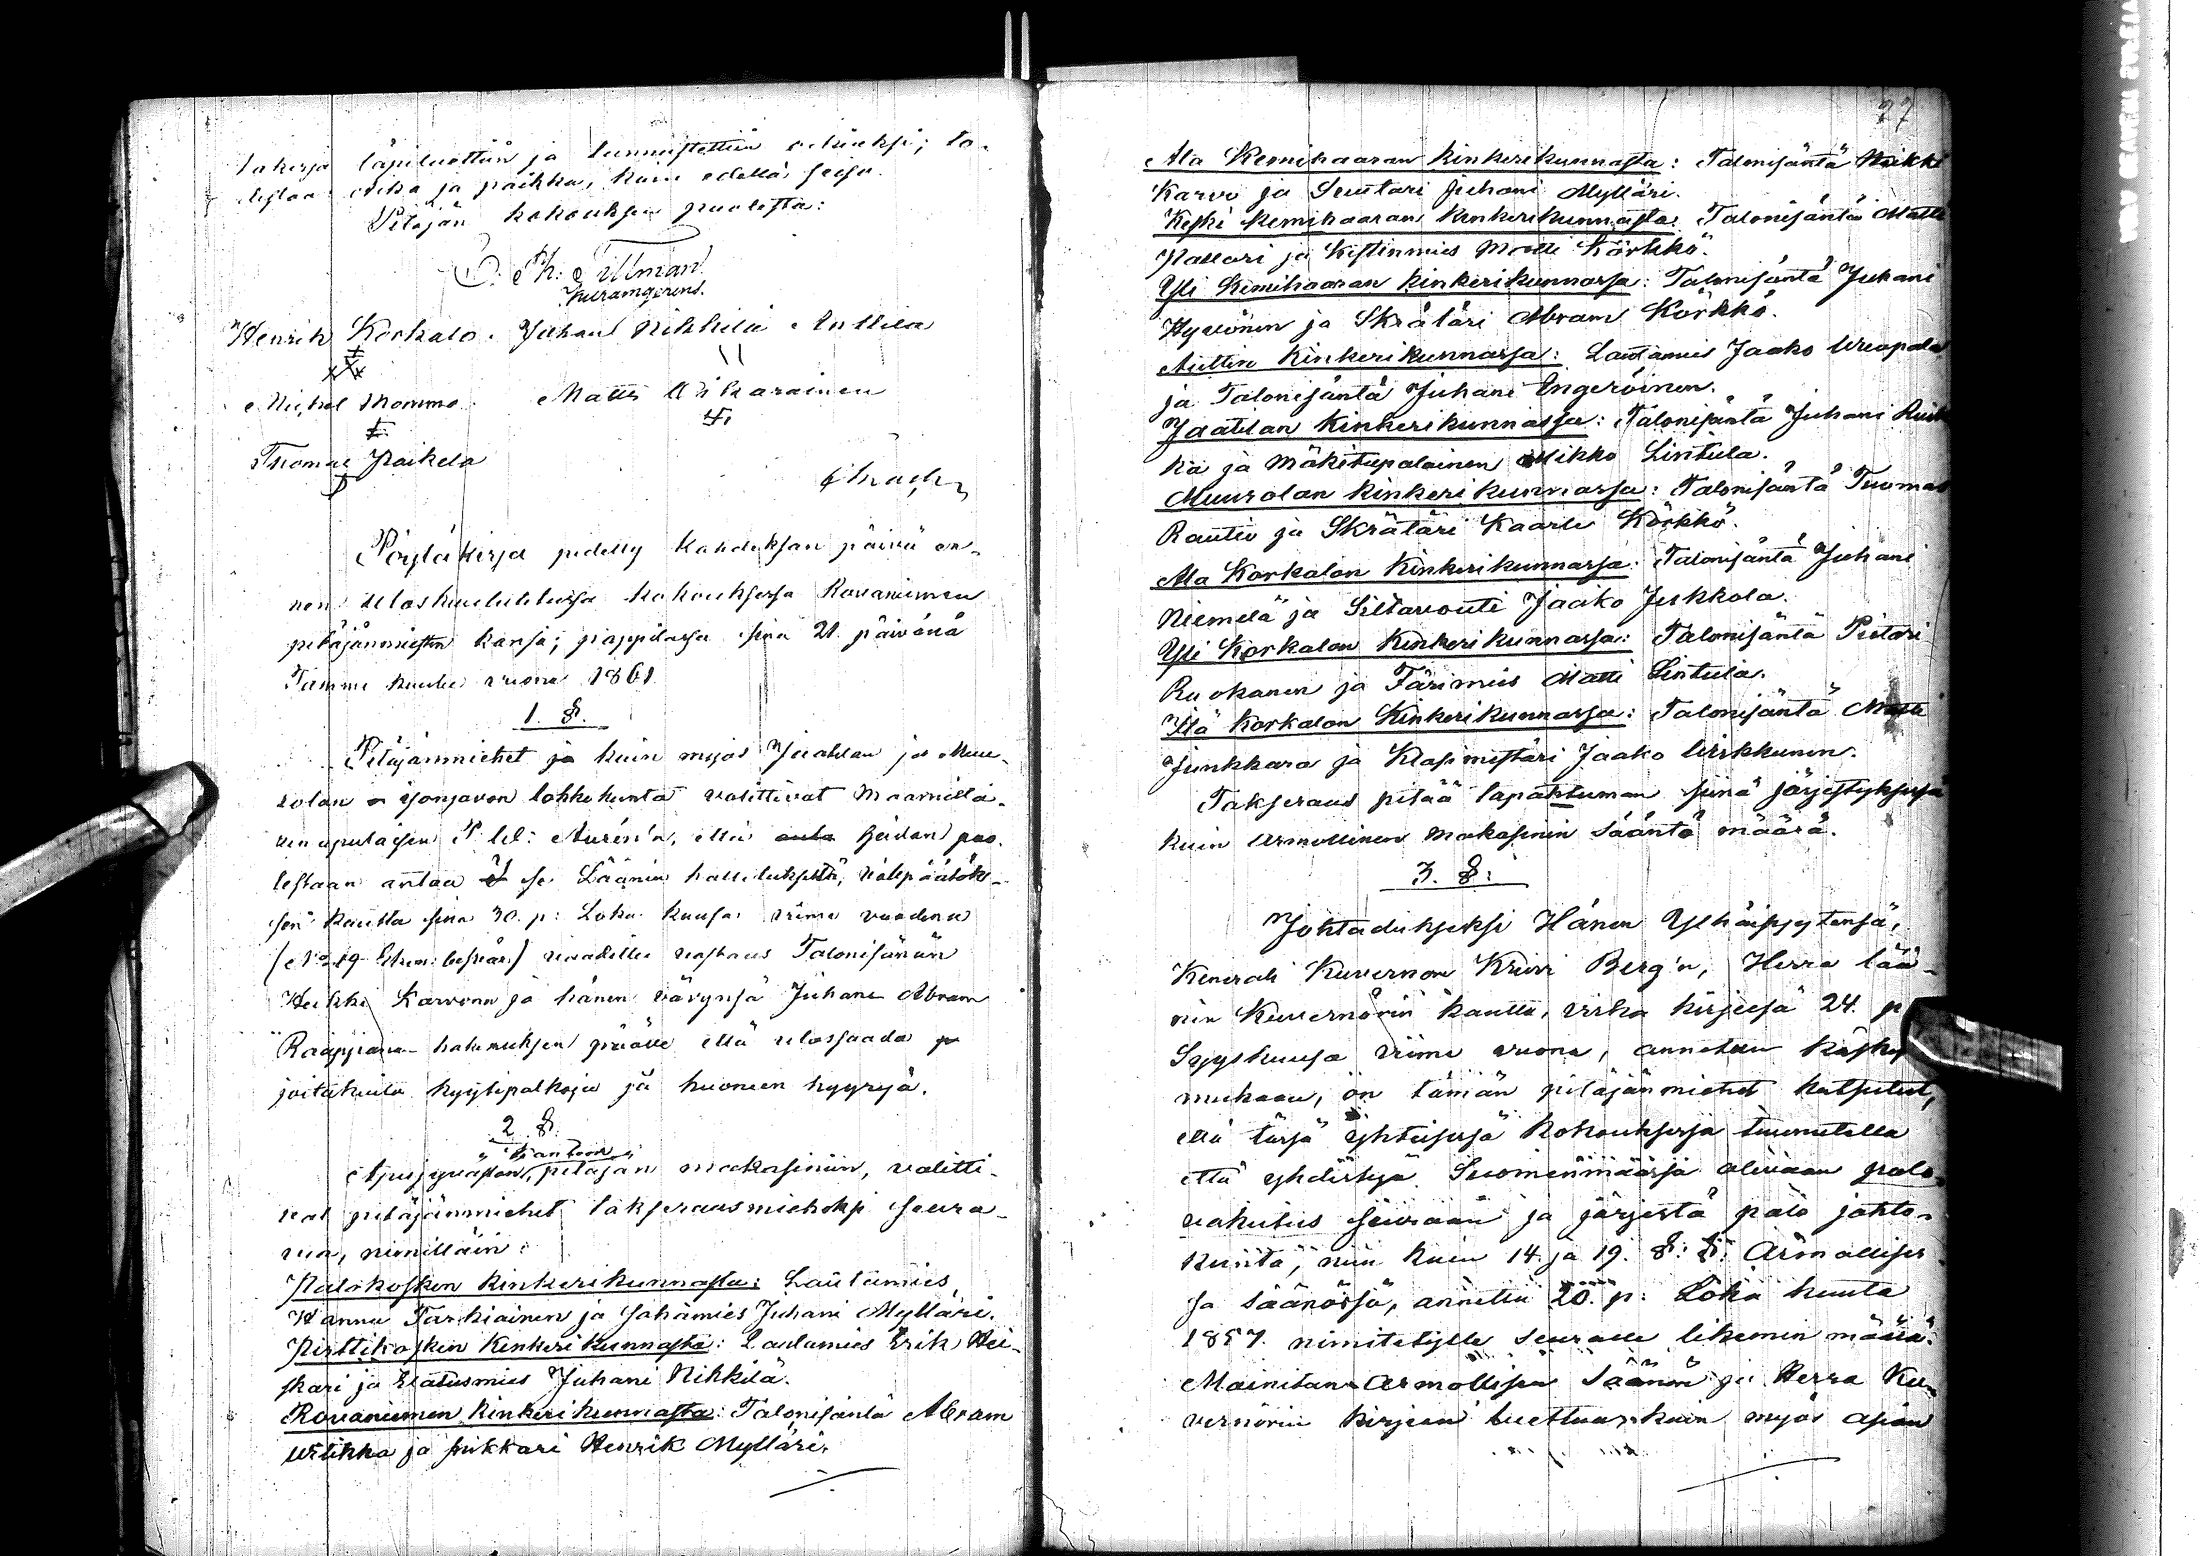 takirja läpiluettiin ja tunnustettiin oikiaksi; to-
distaa. Aika ja paikka, kuin edellä seiso.
Pitäjän kokouksen puolesta:
O. Ph. Tillman.
Henrik Korkalo. Juhani Nikkilä Anttila
Michel Mommo. Matts Wikarainen
Thomas Paikela
Pöytäkirja pidetty kahdeksan päivä en-
nen uloskuulutetussa kokouksessa Rovaniemen
pitäjänmiesten kansa; pappilassa sinä 21. päivänä
Tammi kuuta vuona 1861
1. §.
Pitäjänmiehet ja kuin myös Jaatilan ja Muu-
rolan lohkokunta valittivat
apulaisen Aurén'n, että heidän puo-
lestaan antaa se Läänin hallitukselta, välipäätök-
sen kautta sinä 30. p: Loka kuusa viime vuodena
(No 219) vaadittu vastaus Talonisännän
Heikki Karvonn ja hänen vävynsä Juhani Abram
Raappana hakemuksen päälle että ulossaada
joitakuita kyytipalkoja ja huoneen hyyryä.
2. §.
pitäjän makasiniin, valitti-
vat pitäjänmiehet takseerausmieheksi seura-
van, nimittäin:
Palokosken kinkerikunnasta: Lautamies
Hannu Tarkiainen ja sahamies Juhani Mylläri.
Pirttikosken Kinkerikunnasta: Lautamies Erik Hei-
skari ja Elatusmies Juhani Nikkilä.
Rovaniemen Kinkerikunnasta: Talonisäntä Abram
Ulikka ja pukkari Henrik Mylläri.
77
Ala Kemihaaran kinkerikunnasta: Talonisäntä Heikki
Karvo ja Suutari Juhani Mylläri.
Keski Kemihaaran Kinkerikunnasta: Talonisäntä Matti
Pallari ja Kestinmies Matti Körkkö.
Yli Kemihaaran Kinkerikunnassa: Talonisäntä Juhani
Hyvönen ja Skrätäri Abram Körkkö.
Auttin Kinkerikunnassa: Lautamies Jaako
ja Talonisäntä Juhani Ingeröinen.
Jaatilan Kinkerikunnassa: Talonisäntä Juhani
ka ja Mäkitupalainen Mikko Lintula.
Muurolan kinkerikunnassa: Talonisäntä Tuomas
Rautio ja Skrätäri Kaarle Körkkö.
Ala Korkalon Kinkerikunnassa: Talonisäntä Juhani
Niemelä ja Siltavouti Jaako Jukkola.
Yli Korkalon Kinkerikunnassa: Talonisäntä Pietari
Ruokanen ja Färimies Matti Lintula.
Itä Korkalon Kinkerikunnassa: Talonisäntä Matti
Junkkara ja Klasimestäri Jaako Wirkkunen.
Takseraus pitää tapahtuman siinä järjestyksessä
kuin Armollinen Makasinin Sääntö määrä.
3. §:
Johtadukseksi Hänen Ylhäisyytensä,
Kenrali Kuvernöri Kreivi Berg'n, Herra lää-
nin Kuvernörin kautta, virka kirjeesä 24. p
Syyskuusa viime vuona, annetun käsky
mukaan, on tämän pitäjänmiehet kutsutut,
että tässä yhteisesä kokouksessa tuumitella
että yhdistyä Suomenmaassa olevaan palo-
vakutus seuraan ja järjestä palo johto-
kunta, niin kuin 14. ja 19. §: §: Armollises-
sa säänössä, annettu 20. p: Loka kuuta
1857. nimitetylle seuralle likemin määrä.
Mainitan Armollisen Säänön ja Herra Ku-
vernörin kirjeen luettua, kuin myös asian